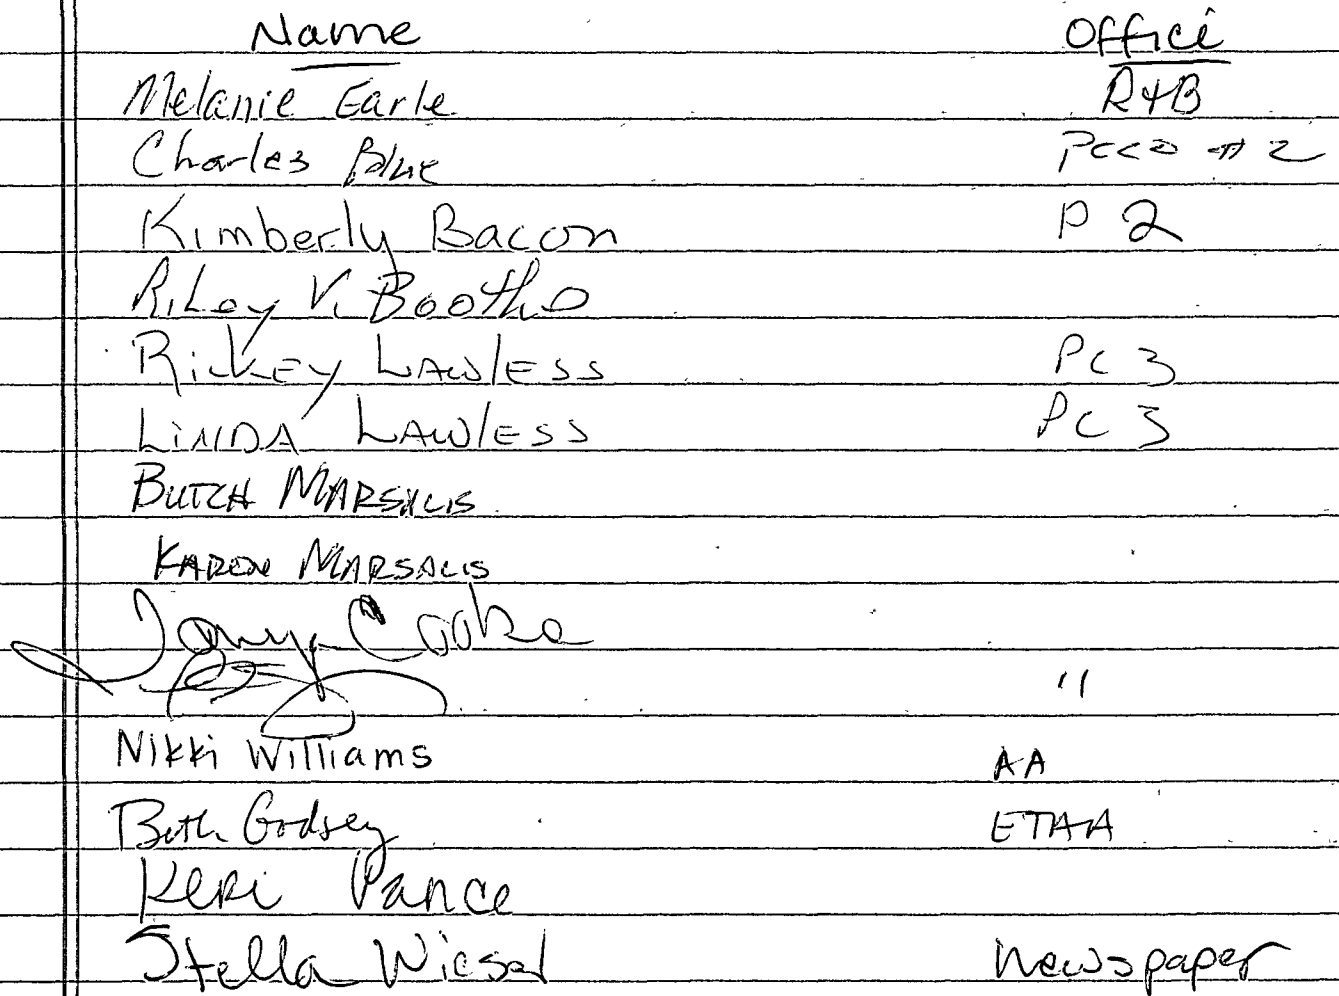 Name Office
Melanie Earle R+B
Charles Blue
Kimberly Bacon P 2
Riley V. Boothe
Rickey Lawless PC 3
Linda Lawless PC 3
Butch Marsalis
Karon Marsalis
Tonya Cooke
"
Nikki Williams AA
Beth Godsey ETAA
Keri Vance
Stella Wiesel Newspaper